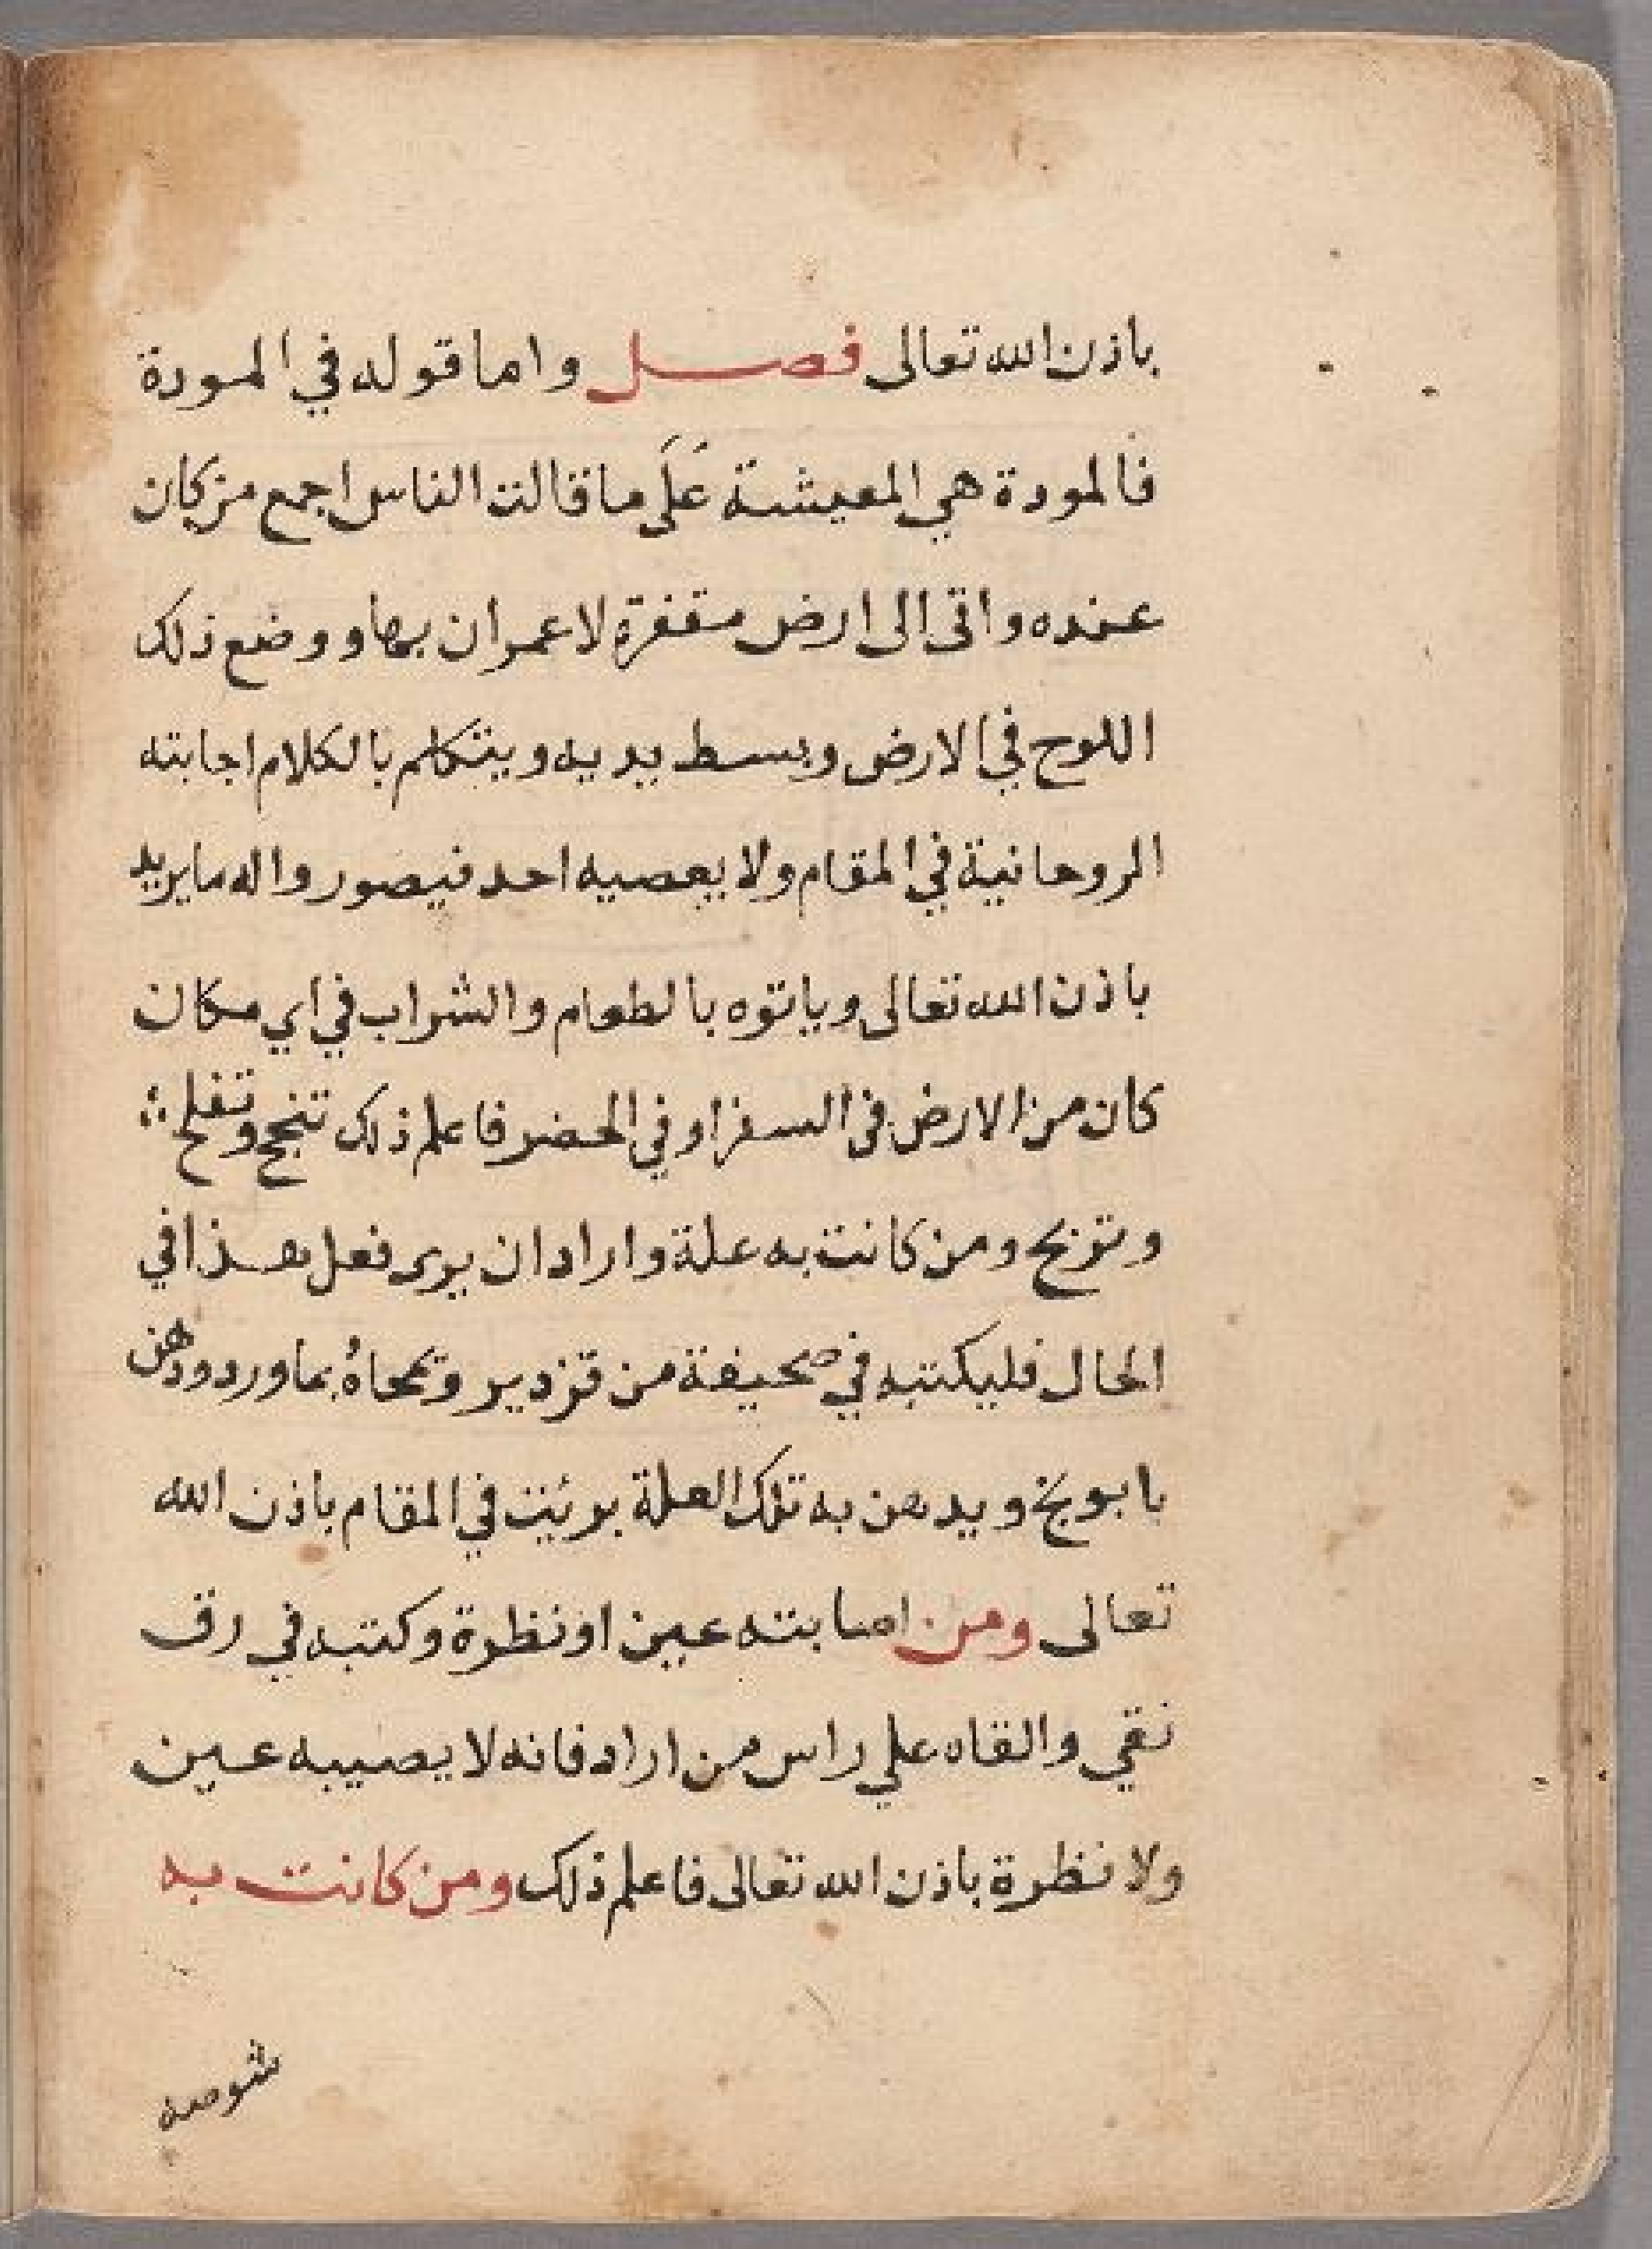 باذن الله تعالى فصل واما قوله في المودة
فالمودة هي المعيشة عَلَى ما قالت الناس اجمع من كان
عنده واتى الى ارض مقفرة لا عمران بها ووضع ذلك
اللوح في الارض وبسط يديه ويتكلم بالكلام اجابته
الروحانية في المقام ولا يعصيه احد فيصوروا له ما يريد
باذن الله تعالى وياتوه بالطعام والشراب في اي مكان
كان من الارض في السفر او في الحضر فاعلم ذلك تنجح وتفلح
وتربح ومن كانت به علة واراد ان يرى فعل هذا في
الحال فليكتبه في صحيفة من قزدير وتمحاهُ بماورد ودهن
بابونج ويدهن به تلك العلة بريت في المقام باذن الله
تعالى ومن اصابته عين او نظرة وكتبه في رق
نقي والقاه علي راس من اراد فانه لا يصيبه عين
ولا نظرة باذن الله تعالى فاعلم ذلك ومن كانت به
شوصة